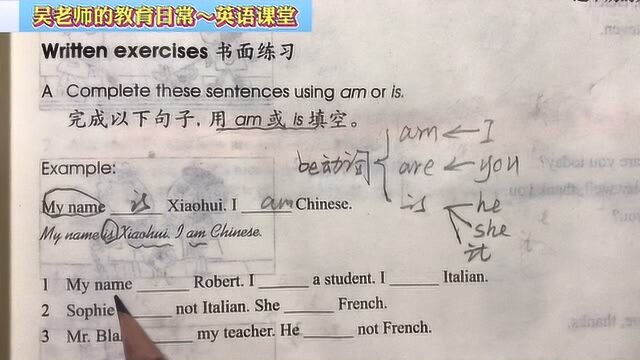 吴老师的教育日常～英语课堂
Written exercises 书面练习
A Complete these sentences using am or is.
完成以下句子，用 am 或 is 填空。
Example:
My name is Xiaohui. I am Chinese.
My name is Xiaohui. I am Chinese.
be动词
am ← I
are ← you
is ← he
she
it
1 My name ______ Robert. I ______ a student. I ______ Italian.
2 Sophie ______ not Italian. She ______ French.
3 Mr. Bla ______ my teacher. He ______ not French.